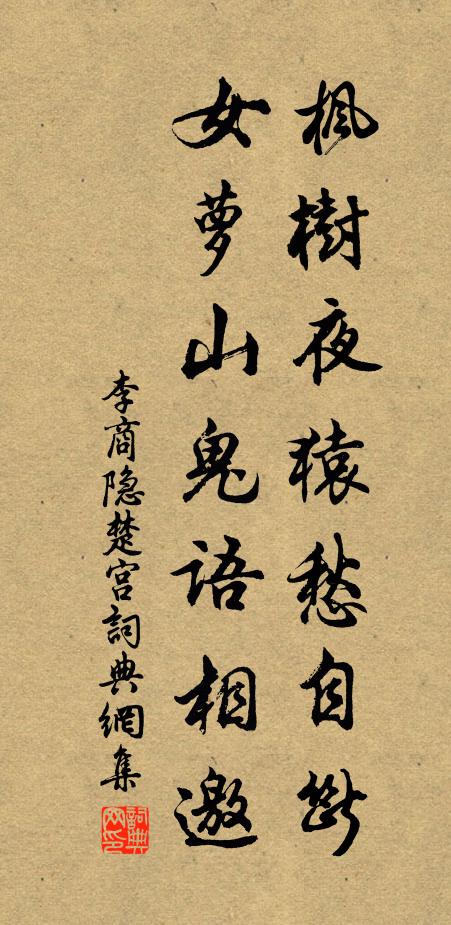 枫樹夜猿愁自斷
女萝山鬼語相邀
李商隐楚宫詞典網集
詞典網印